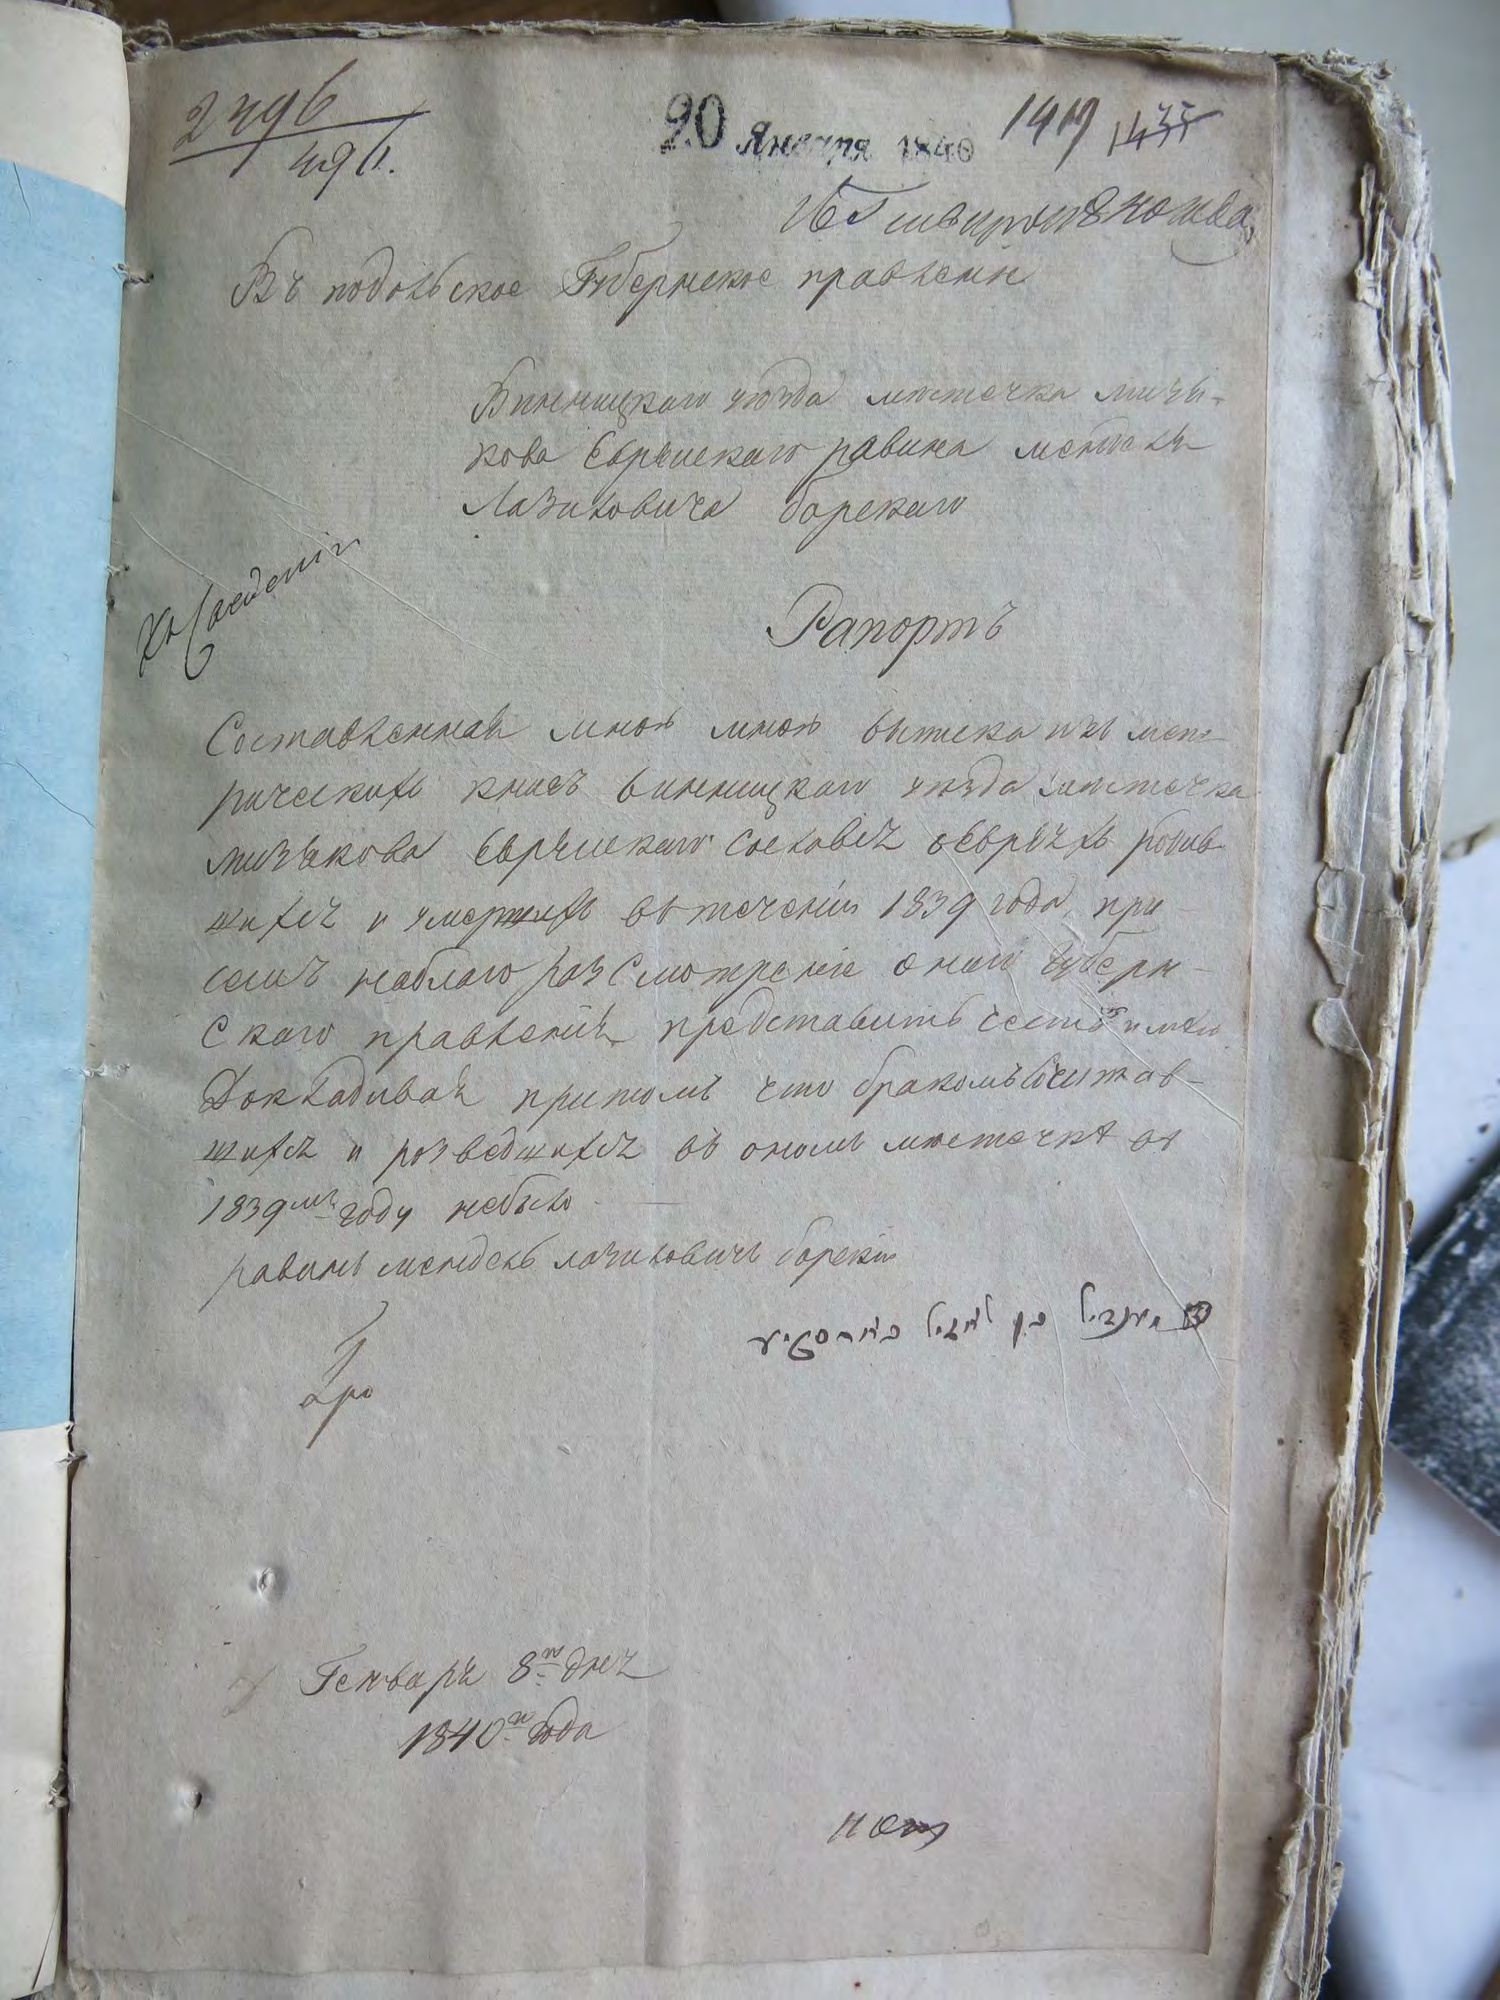 2496
496.
20 Января 1840
1419
Въ подольское Губернское правление
Винницкаго уезда местечка мизя-
кова Еврейскаго равина менделя
Лазиловича борскаго
Къ Сведению
Рапортъ
Составленная мною мною выписка изъ мет-
рическихъ книгъ винницкаго уезда местечка
мизякова Еврейскаго сословия о Евреяхъ родив-
шихся и умершихъ втечении 1839 года при
семъ наблаго разсмотрение оного Губерн-
скаго правления представить честь имею
Докладивая притомъ что бракомъ Сочитав-
шихся и розведшихся въ ономъ местечке въ
1839мъ году небыло
равинъ мендель лазиловичъ борский
מענדיל בן לאזיל
Генваря 8го дня
1840го года